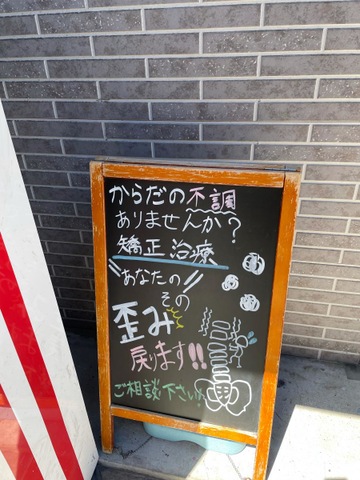 からだの不調
ありませんか?
矯正治療
あなたの
その
歪み
戻ります!!
ご相談下さい